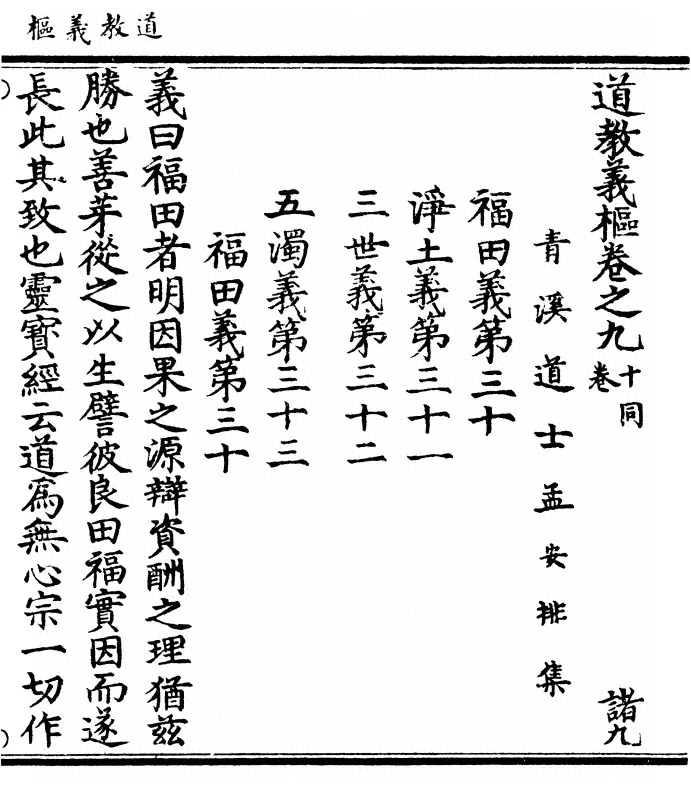 道教義樞
道教義樞卷之九 十同卷 諸九
青溪道士孟安排集
福田義第三十
淨土義第三十一
三世義第三十二
五濁義第三十三
福田義第三十
義曰福田者明因果之源辯資酬之理猶兹
勝也善芽從之以生譬彼良田福實因而遂
長此其致也靈寶經云道爲無心宗一切作